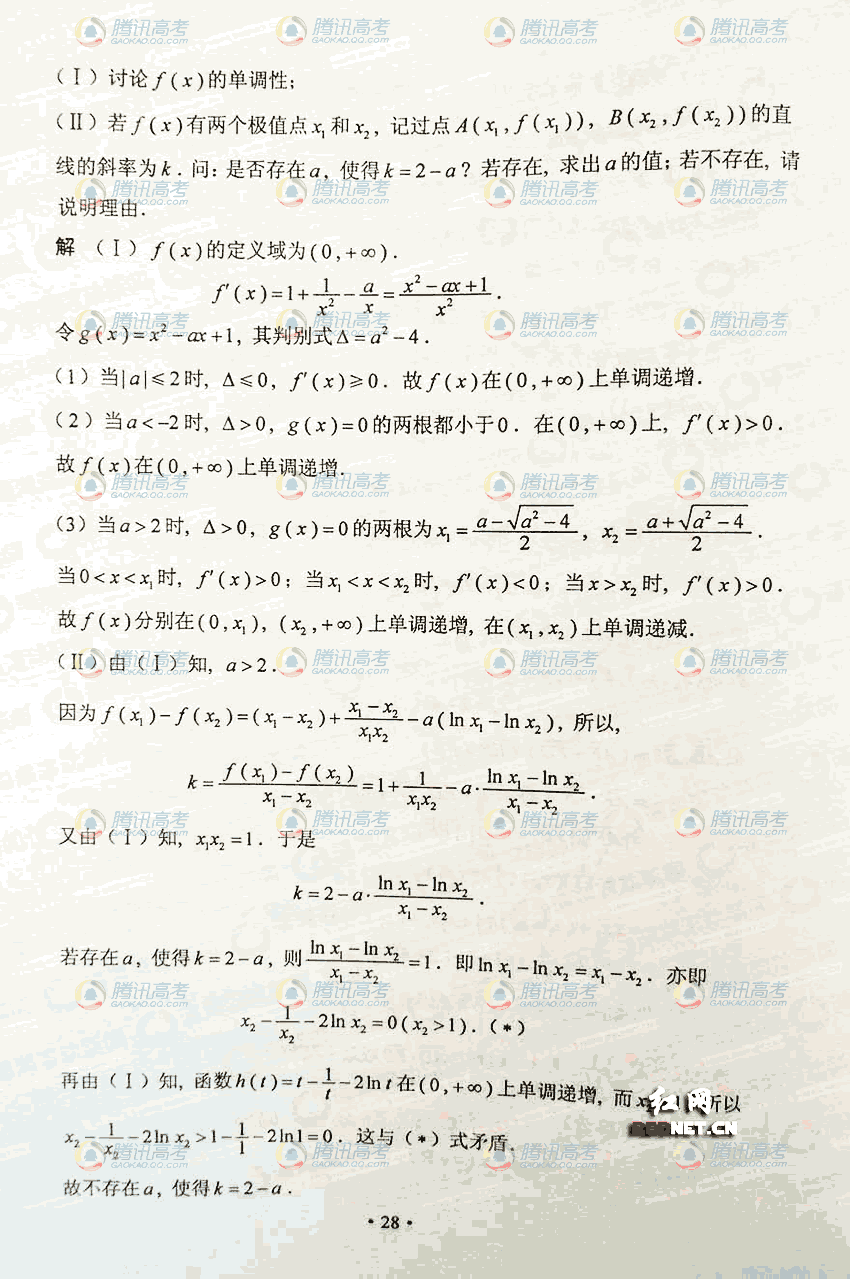 腾讯高考 腾讯高考 腾讯高考 腾讯高考
GAOKAO.QQ.COM GAOKAO.QQ.COM GAOKAO.QQ.COM GAOKAO.QQ.COM
(Ⅰ)讨论f(x)的单调性;
(Ⅱ)若f(x)有两个极值点x₁和x₂, 记过点A(x₁,f(x₁)), B(x₂,f(x₂))的直
线的斜率为k. 问: 是否存在a, 使得k=2-a? 若存在, 求出a的值; 若不存在, 请
说明理由.
解 (Ⅰ) f(x)的定义域为(0,+∞).
f′(x)=1+1/x²-a/x=(x²-ax+1)/x².
令g(x)=x²-ax+1, 其判别式Δ=a²-4.
(1)当|a|≤2时, Δ≤0, f′(x)≥0. 故f(x)在(0,+∞)上单调递增.
(2)当a<-2时, Δ>0, g(x)=0的两根都小于0. 在(0,+∞)上, f′(x)>0.
故f(x)在(0,+∞)上单调递增.
(3)当a>2时, Δ>0, g(x)=0的两根为x₁=(a-√(a²-4))/2, x₂=(a+√(a²-4))/2.
当0<x<x₁时, f′(x)>0; 当x₁<x<x₂时, f′(x)<0; 当x>x₂时, f′(x)>0.
故f(x)分别在(0,x₁), (x₂,+∞)上单调递增, 在(x₁,x₂)上单调递减.
(Ⅱ)由(Ⅰ)知, a>2.
因为f(x₁)-f(x₂)=(x₁-x₂)+(x₁-x₂)/(x₁x₂)-a(ln x₁-ln x₂), 所以,
k=(f(x₁)-f(x₂))/(x₁-x₂)=1+1/(x₁x₂)-a·(ln x₁-ln x₂)/(x₁-x₂).
又由(Ⅰ)知, x₁x₂=1. 于是
k=2-a·(ln x₁-ln x₂)/(x₁-x₂).
若存在a, 使得k=2-a, 则(ln x₁-ln x₂)/(x₁-x₂)=1. 即ln x₁-ln x₂=x₁-x₂. 亦即
x₂-1/x₂-2ln x₂=0(x₂>1).(*)
再由(Ⅰ)知, 函数h(t)=t-1/t-2ln t在(0,+∞)上单调递增, 而x₂ 所以
红网
REDNET.CN
x₂-1/x₂-2ln x₂>1-1/1-2ln1=0. 这与(*)式矛盾.
故不存在a, 使得k=2-a.
·28·